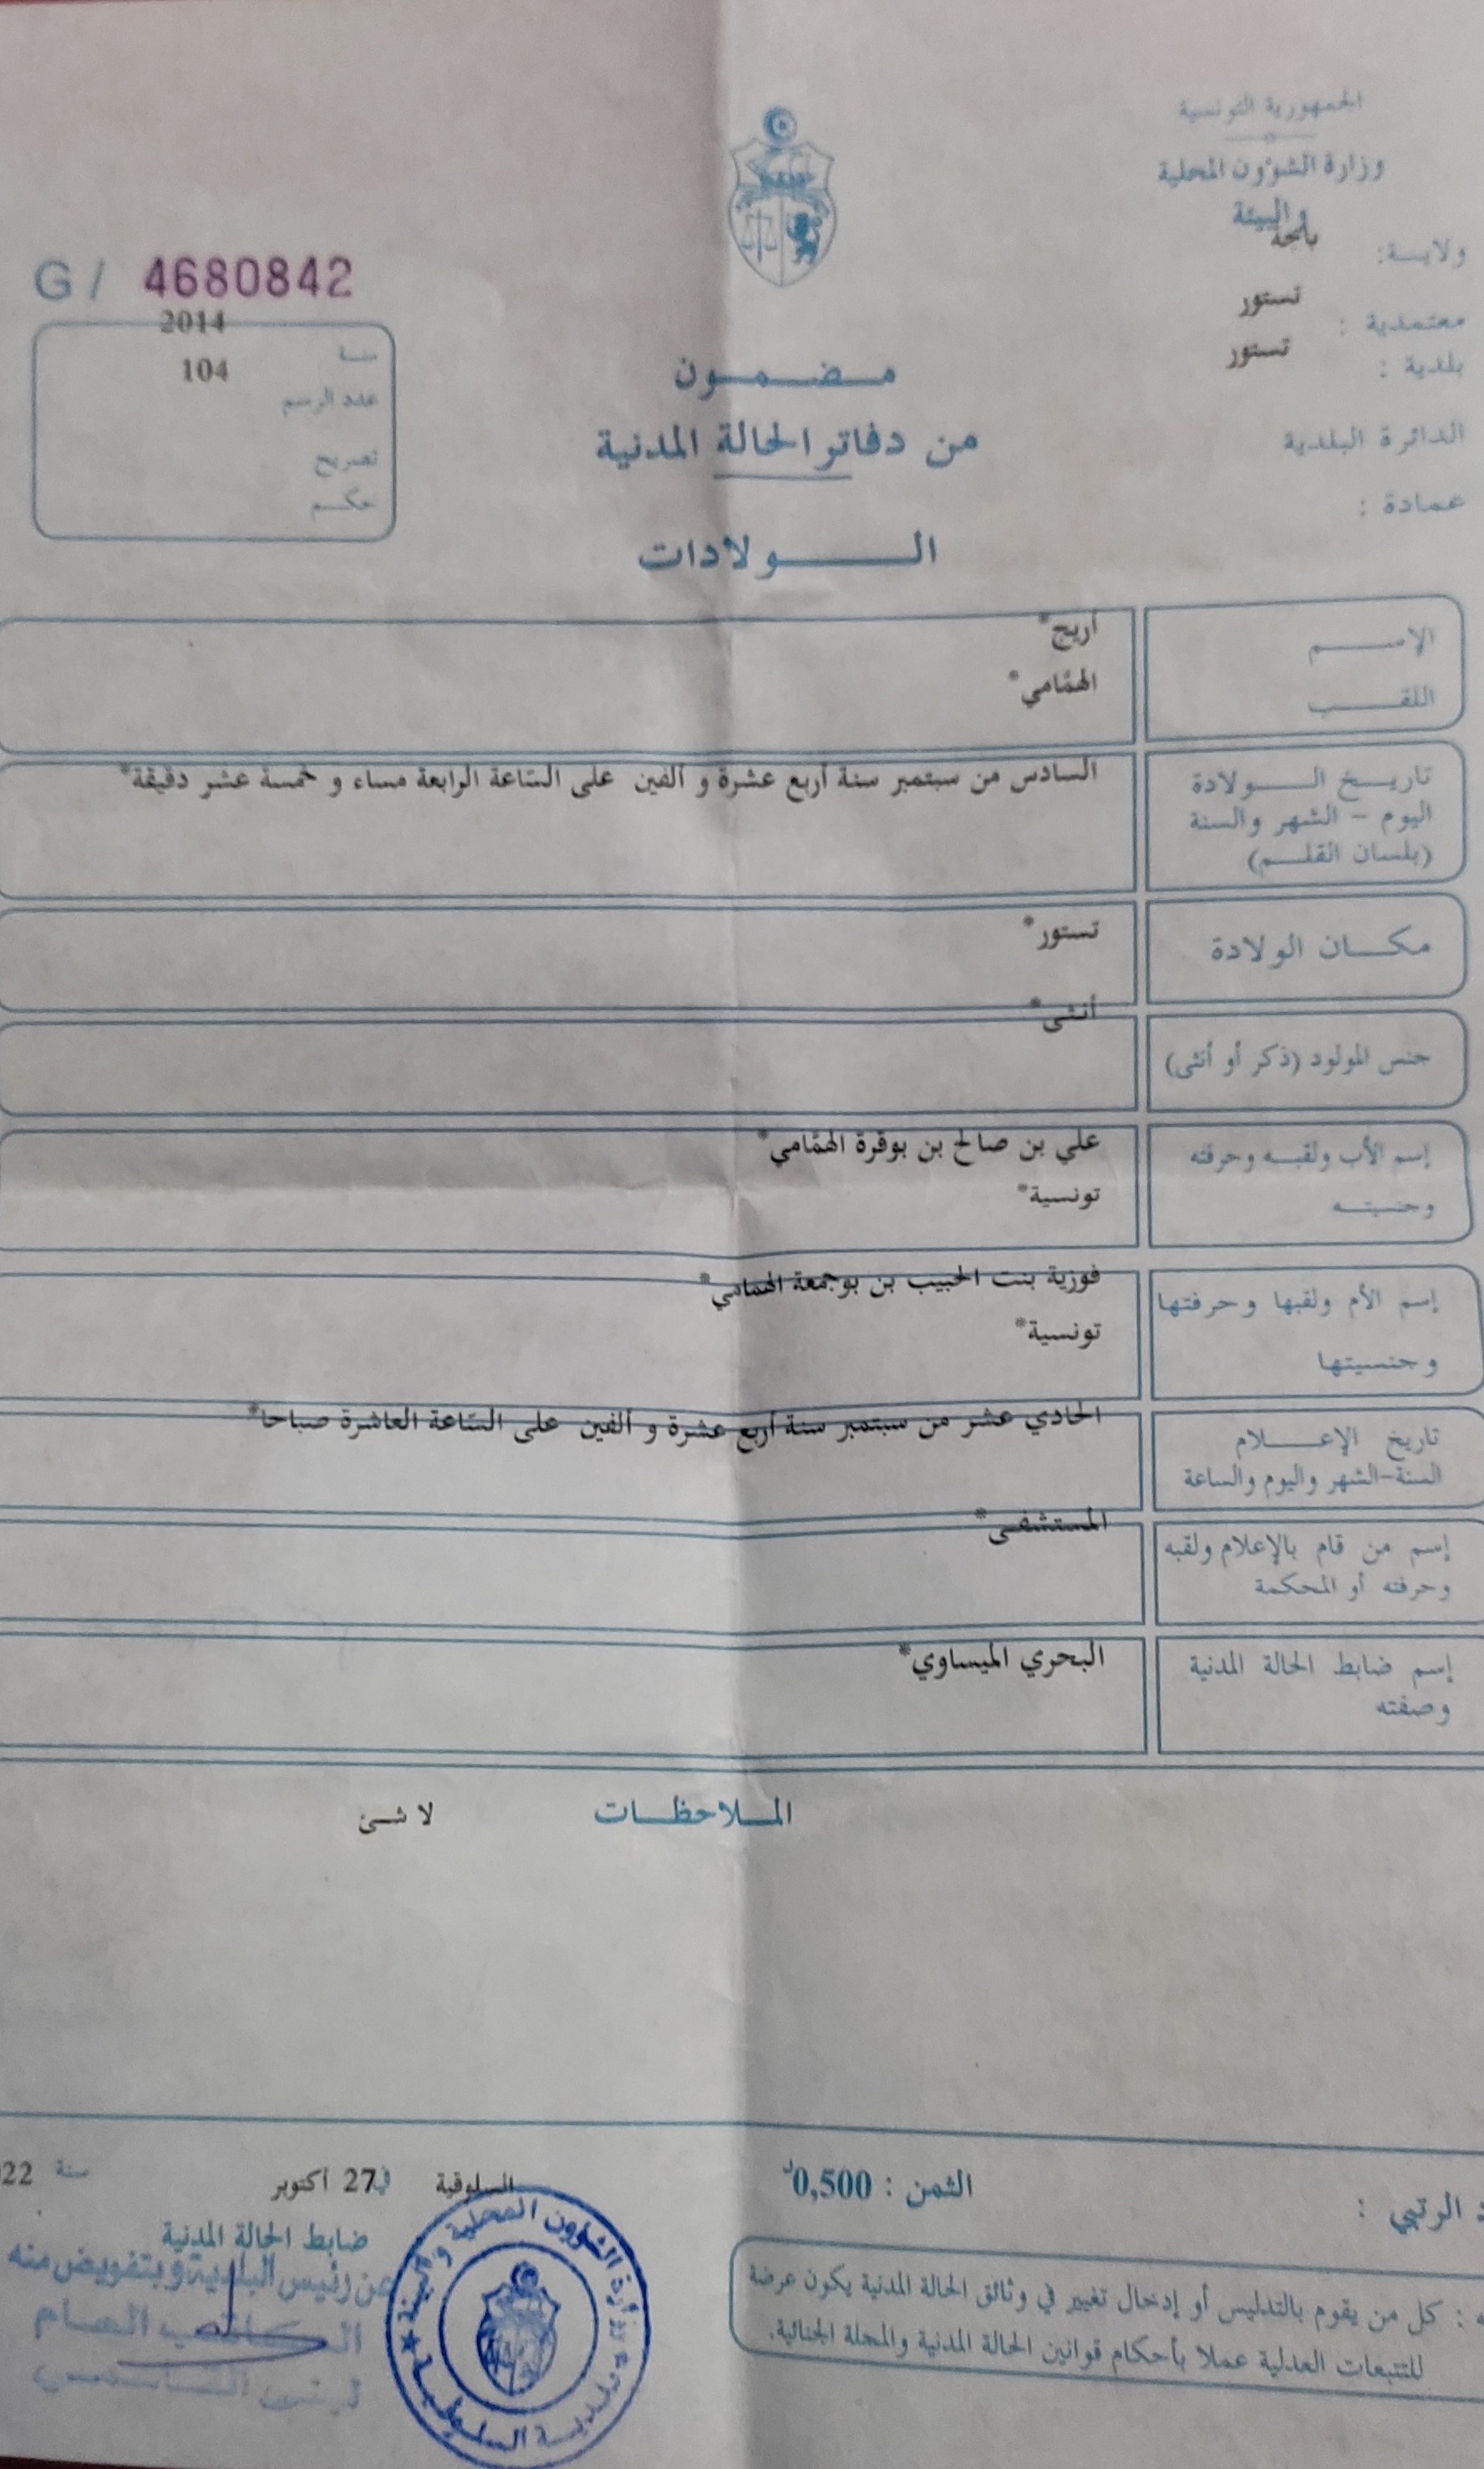 الجمهورية التونسية
وزارة الشؤون المحلية
والبيئة
ولايـة: باجة
معتمدية : تستور
بلدية : تستور
الدائرة البلدية
عمادة :
G / 4680842
سنة 2014
عدد الرسم 104
تصريح
حكم
مضمون
من دفاتر الحالة المدنية
الولادات
الإسم أريج*
اللقب الهمّامي*
تاريخ الولادة السادس من سبتمبر سنة أربع عشرة و ألفين على السّاعة الرابعة مساء و خمسة عشر دقيقة*
اليوم - الشهر والسنة
(بلسان القلم)
مكان الولادة تستور*
جنس المولود (ذكر أو أنثى) أنثى*
إسم الأب ولقبه وحرفته علي بن صالح بن بوقرة الهمّامي*
وجنسيته تونسية*
إسم الأم ولقبها وحرفتها فوزية بنت الحبيب بن بوجمعة الهمامي*
وجنسيتها تونسية*
تاريخ الإعلام الحادي عشر من سبتمبر سنة أربع عشرة و ألفين على السّاعة العاشرة صباحا*
السنة-الشهر واليوم والساعة
إسم من قام بالإعلام ولقبه المستشفى*
وحرفته أو المحكمة
إسم ضابط الحالة المدنية البحري الميساوي*
وصفته
الملاحظات لا شئ
الرتبي :
الثمن : 0,500د
السلوقية في 27 أكتوبر سنة 22
ضابط الحالة المدنية
عن رئيس البلدية وبتفويض منه
الكاتب العام
وزارة الشؤون المحلية والبيئة
بلدية السلوقية
: كل من يقوم بالتدليس أو إدخال تغيير في وثائق الحالة المدنية يكون عرضة
للتتبعات العدلية عملا بأحكام قوانين الحالة المدنية والمجلة الجنائية.